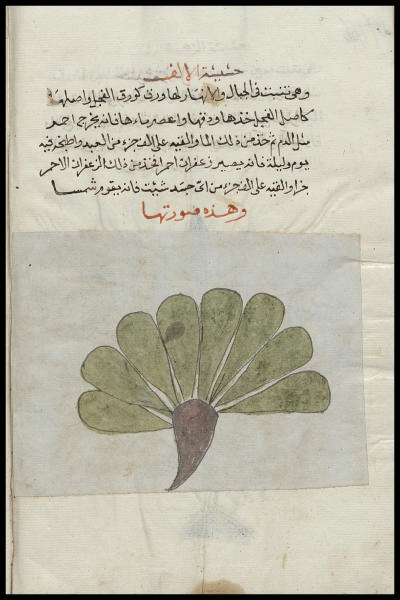 حشيشة الالف
وهي تنبت في الجبال والانهار لها ورق كورق الفجل واصلها
كاصل الفجل خذها ودقها واعصر ماءها فانه يخرج احمر
مثل الدم ثم خذ من ذلك الماء والقيه على الف جزء من العبد واطبخه فيه
يوم وليلة فانه يصير زعفران احمر فخذ من ذلك الزعفران الاحمر
جزا والقيه على الف جزء من اي جسد شئت فانه يقوم شمسا
وهذه صورتها